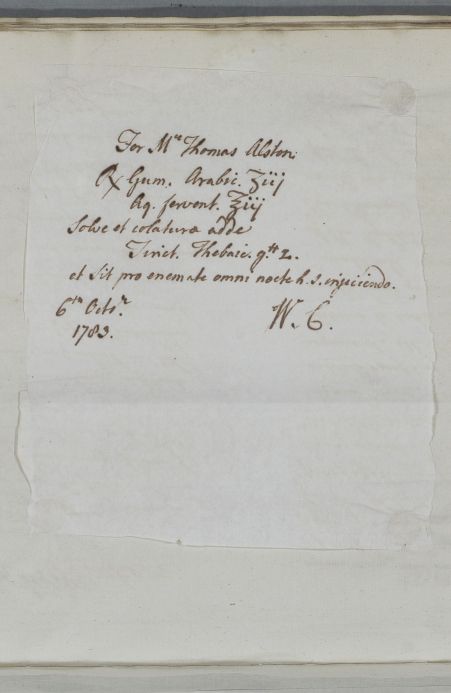 For Mr Thomas Alston.
℞ Gum. Arabic. ʒiij
Aq. fervent. ℥iij
Solve et colaturæ adde
Tinct. Thebaic. gtt L.
et sit pro enemate omni nocte h. s. injiciendo.
6th Octr.
1783.
W. C.